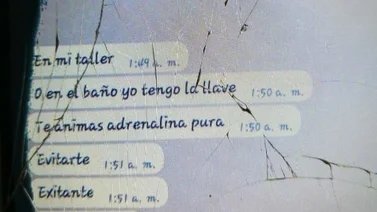 En mi taller 1:49 a. m.
O en el baño yo tengo la llave 1:50 a. m.
Te animas adrenalina pura 1:50 a. m.
Evitarte 1:51 a. m.
Exitante 1:51 a. m.